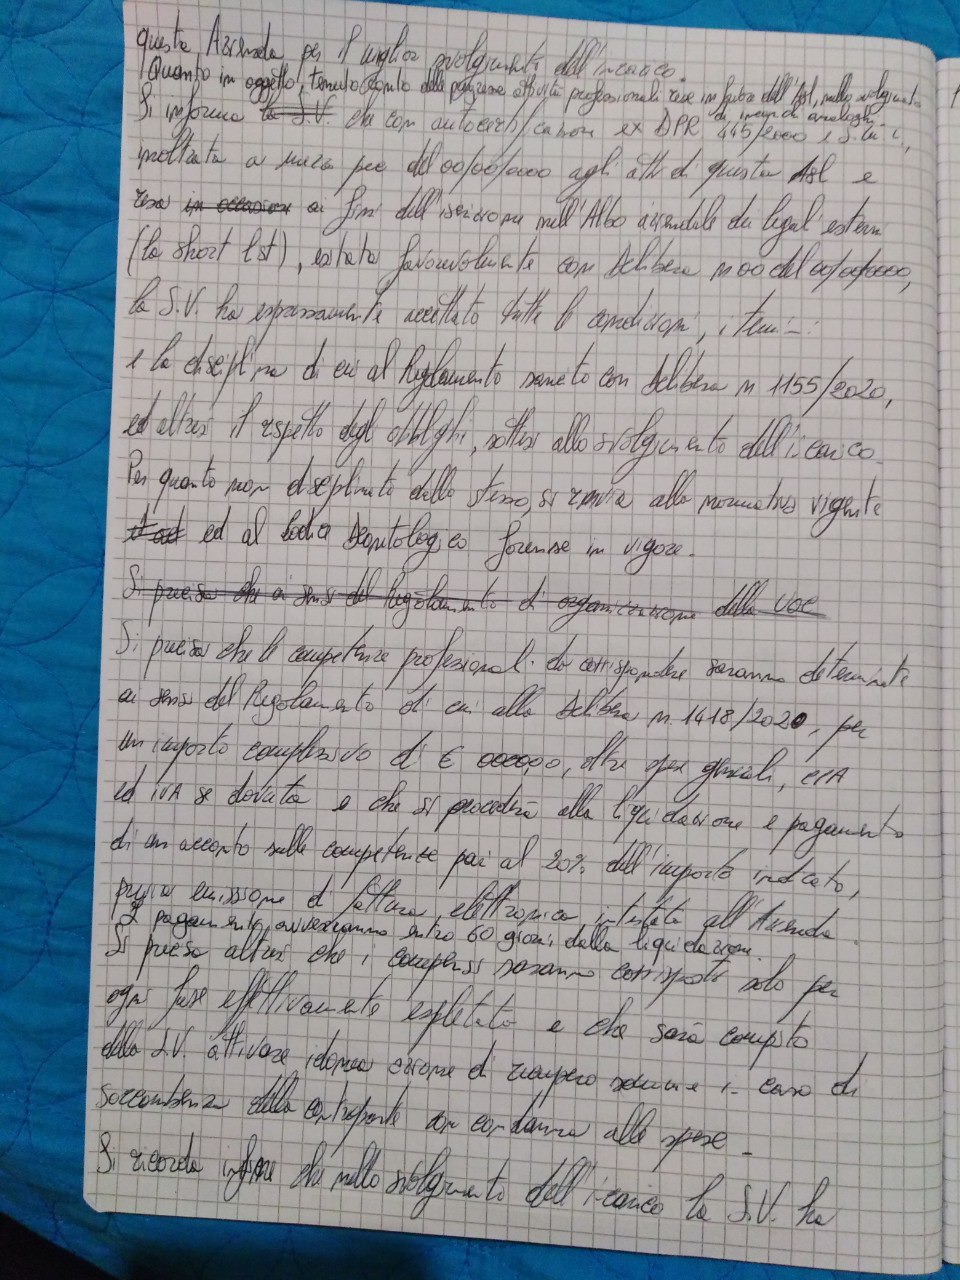 questa Azienda per il miglior svolgimento dell'incarico.
Quanto in oggetto, tenuto conto delle pregresse attività professionali rese in favore dell'Asl, nello svolgimento
di incarichi analoghi.
Si informa la S.V. che con autocertificazione ex DPR 445/2000 e s.m.i.,
inoltrata a mezzo pec del 00/00/0000 agli atti di questa Asl e
resa in occasione ai fini dell'iscrizione nell'Albo aziendale dei legali esterni
(la short list), esitata favorevolmente con Delibera n 00 del 00/00/0000,
la S.V. ha espressamente accettato tutte le condizioni, i termini
e la disciplina di cui al Regolamento sancito con Delibera n 1155/2020,
ed altresì il rispetto degli obblighi, sottesi allo svolgimento dell'incarico.
Per quanto non disciplinato dallo stesso, si rinvia alla normativa vigente
ed al Codice Deontologico forense in vigore.
Si precisa che ai sensi del Regolamento di organizzazione della UOC
Si precisa che le competenze professionali da corrispondere saranno determinate
ai sensi del Regolamento di cui alla Delibera n. 1418/2020, per
un importo complessivo di € 000000, oltre spese generali, CPA
ed IVA se dovuta e che si procederà alla liquidazione e pagamento
di un acconto sulle competenze pari al 20% dell'importo indicato,
previa emissione di fattura elettronica intestata all'Azienda.
I pagamenti avverranno entro 60 giorni dalla liquidazione.
Si precisa altresì che i compensi saranno corrisposti solo per
ogni fase effettivamente espletata e che sarà compito
della S.V. attivare idonea azione di recupero somme in caso di
soccombenza della controparte con condanna alle spese.
Si ricorda infine che nello svolgimento dell'incarico la S.V. ha